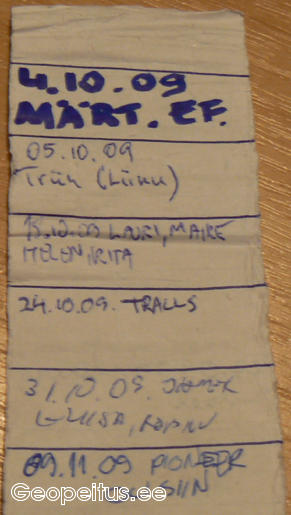 4.10.09
MÄRT. EF.
05.10.09
Triin (Liisu)
LAURI, MAIRE
HELEN, IRITA
24.10.09. TRALLS
31.10.09.
09.11.09 PIONEER
Geopeitus.ee